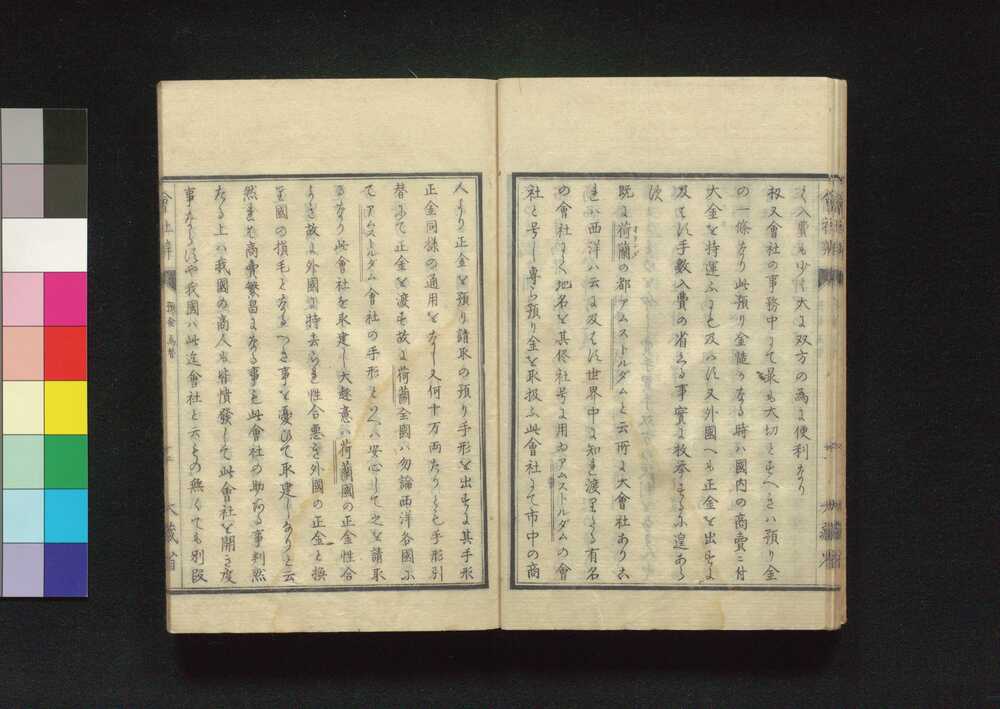 く入費も少く大に双方の為に便利なり
扨又会社の事務中にて最も大切とすべきハ預り金
の一條なり此預り金慥かなる時ハ國内の商賣に付
大金を持運ふにも及ハす又外國へも正金を出すに
及ハす手数入費の省ける事實に枚挙するに遑あら
次
既に荷蘭の都アムストルダムと云所に大會社あり古
オランダ
西洋ハ云に及はす世界中に知れ渡りたる有名
の會社にて地名を其侭社号に用ゐアムストルダムの會
社と号し専ら預り金を取扱ふ此會社にて市中の商
會社辨
大藏省
人より正金を預り請取の預り手形を出す其手形
正金同様の通用をなし又何十万両たりとも手形引
替にて正金を渡す故に荷蘭全國ハ勿論西洋各國に
てアムストルダム會社の手形といへハ安心して之を請取
るなり此會社を取建し大趣意ハ荷蘭國の正金性合
よき故に外國に持去られ性合悪き外國の正金と換
り國の損毛となるへき事を憂ひて取建しなりと云
然れとも商賣繁昌になる事も此會社の助なる事判然
たる上ハ我國の商人も皆憤發して此會社を開き度
事ならすや我國ハ此迄會社と云もの無くても別段
會社辨
預金 為替
大藏省